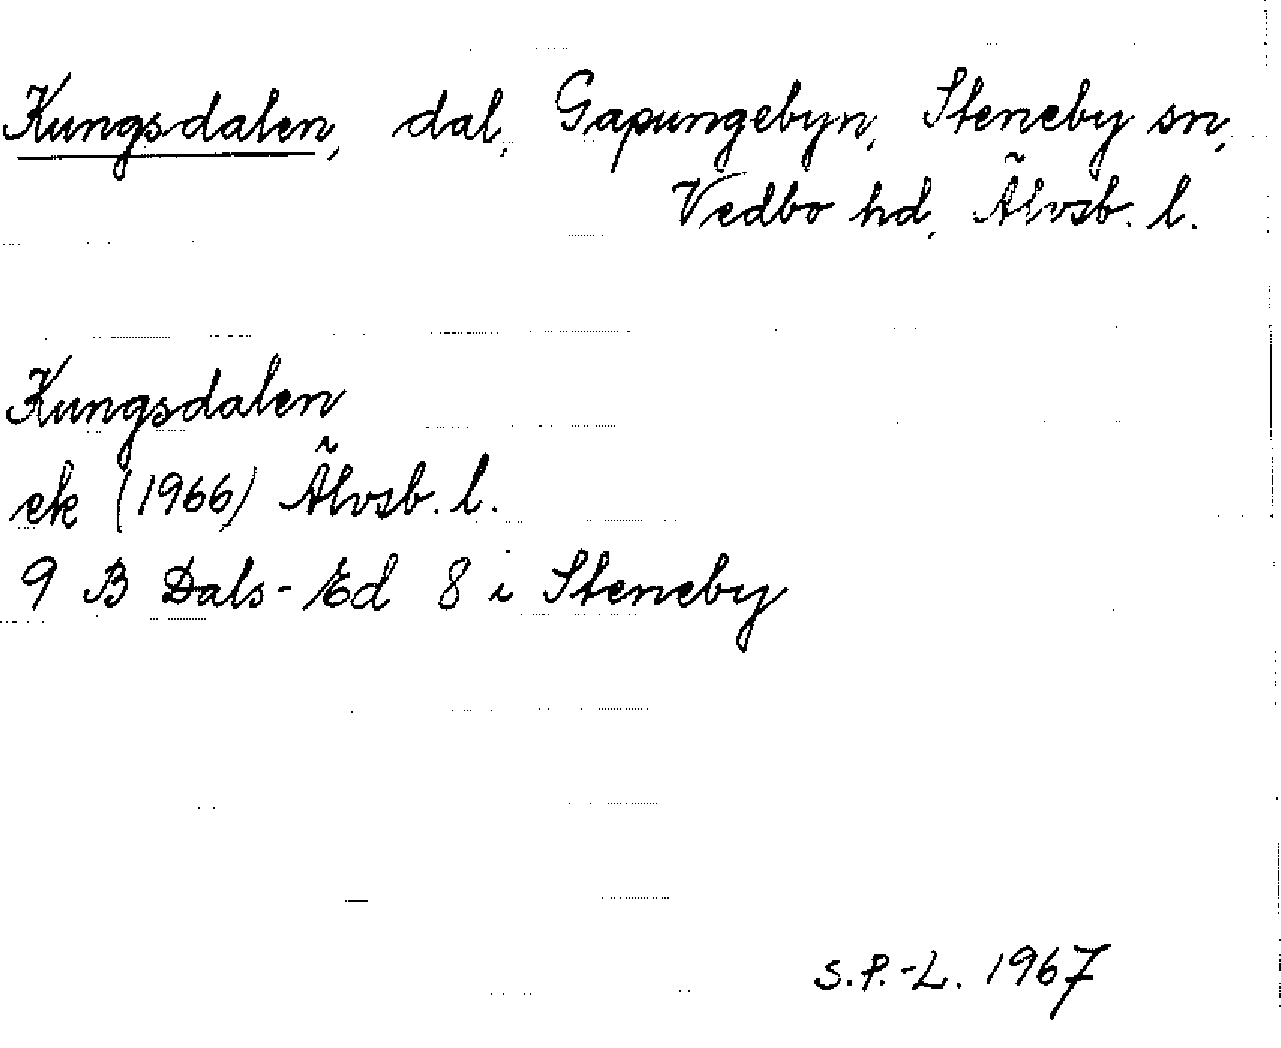 Kungsdalen, dal, Gapungebyn, Steneby sn,
Vedbo hd, Älvsb. l.
Kungsdalen
ek (1966) Älvsb. l.
9 B Dals-Ed 8 i Steneby
S.P.-L. 1967